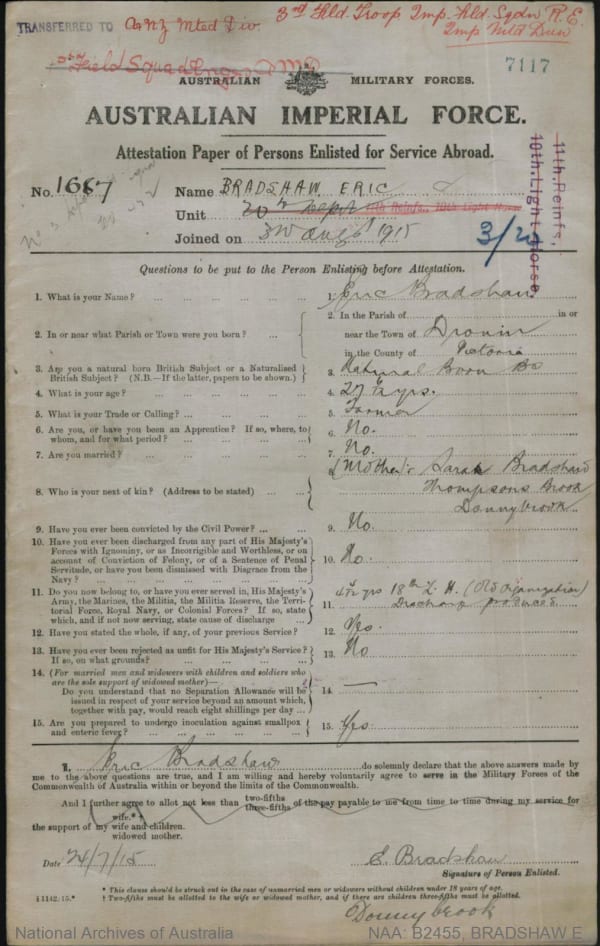 TRANSFERRED TO Anz Mted Div. 3rd Fld. Troop Imp. Fld. Sqdn R.E.
Imp Mtd Divn
Field Squad
7117
AUSTRALIAN MILITARY FORCES.
AUSTRALIAN IMPERIAL FORCE.
Attestation Paper of Persons Enlisted for Service Abroad.
No. 1687 Name BRADSHAW ERIC
Unit 20th Dept 11th Reinfs., 10th Light Horse
Joined on 3rd Aug 1915
11th. Reinfs,
10th. Light Horse.
Questions to be put to the Person Enlisting before Attestation.
1. What is your Name? ... 1. Eric Bradshaw
2. In or near what Parish or Town were you born? ... 2. In the Parish of in or
near the Town of Drouin
in the County of Victoria
3. Are you a natural born British Subject or a Naturalised
British Subject? (N.B.—If the latter, papers to be shown.) 3. Natural Born BS
4. What is your age? ... 4. yrs.
5. What is your Trade or Calling? ... 5. Farmer
6. Are you, or have you been an Apprentice? If so, where, to
whom, and for what period? ... 6. No.
7. Are you married? ... 7. No.
8. Who is your next of kin? (Address to be stated) ... 8. (Mother) Sarah Bradshaw
Thompsons Brook
Donnybrook
9. Have you ever been convicted by the Civil Power? ... 9. No.
10. Have you ever been discharged from any part of His Majesty's
Forces with Ignominy, or as Incorrigible and Worthless, or on
account of Conviction of Felony, or of a Sentence of Penal
Servitude, or have you been dismissed with Disgrace from the
Navy? ... 10. No.
11. Do you now belong to, or have you ever served in, His Majesty's
Army, the Marines, the Militia, the Militia Reserve, the Terri-
torial Force, Royal Navy, or Colonial Forces? If so, state
which, and if not now serving, state cause of discharge ... 11. yrs 18th L. H. (Old Organization)
Discharge produced
12. Have you stated the whole, if any, of your previous Service? 12. Yes.
13. Have you ever been rejected as unfit for His Majesty's Service?
If so, on what grounds? ... 13. No
14. (For married men and widowers with children and soldiers who
are the sole support of widowed mother)—
Do you understand that no Separation Allowance will be
issued in respect of your service beyond an amount which,
together with pay, would reach eight shillings per day? ... 14. —
15. Are you prepared to undergo inoculation against smallpox
and enteric fever? ... 15. Yes
I, Eric Bradshaw do solemnly declare that the above answers made by
me to the above questions are true, and I am willing and hereby voluntarily agree to serve in the Military Forces of the
Commonwealth of Australia within or beyond the limits of the Commonwealth.
And I further agree to allot not less than two-fifths three-fifths of the pay payable to me from time to time during my service for
the support of my wife.* wife and children. widowed mother.
Date 24/7/15 E. Bradshaw
Signature of Person Enlisted.
§ 1142/15.* * This clause should be struck out in the case of unmarried men or widowers without children under 18 years of age.
† Two-fifths must be allotted to the wife or widowed mother, and if there are children three-fifths must be allotted.
Donnybrook
National Archives of Australia NAA: B2455, BRADSHAW E